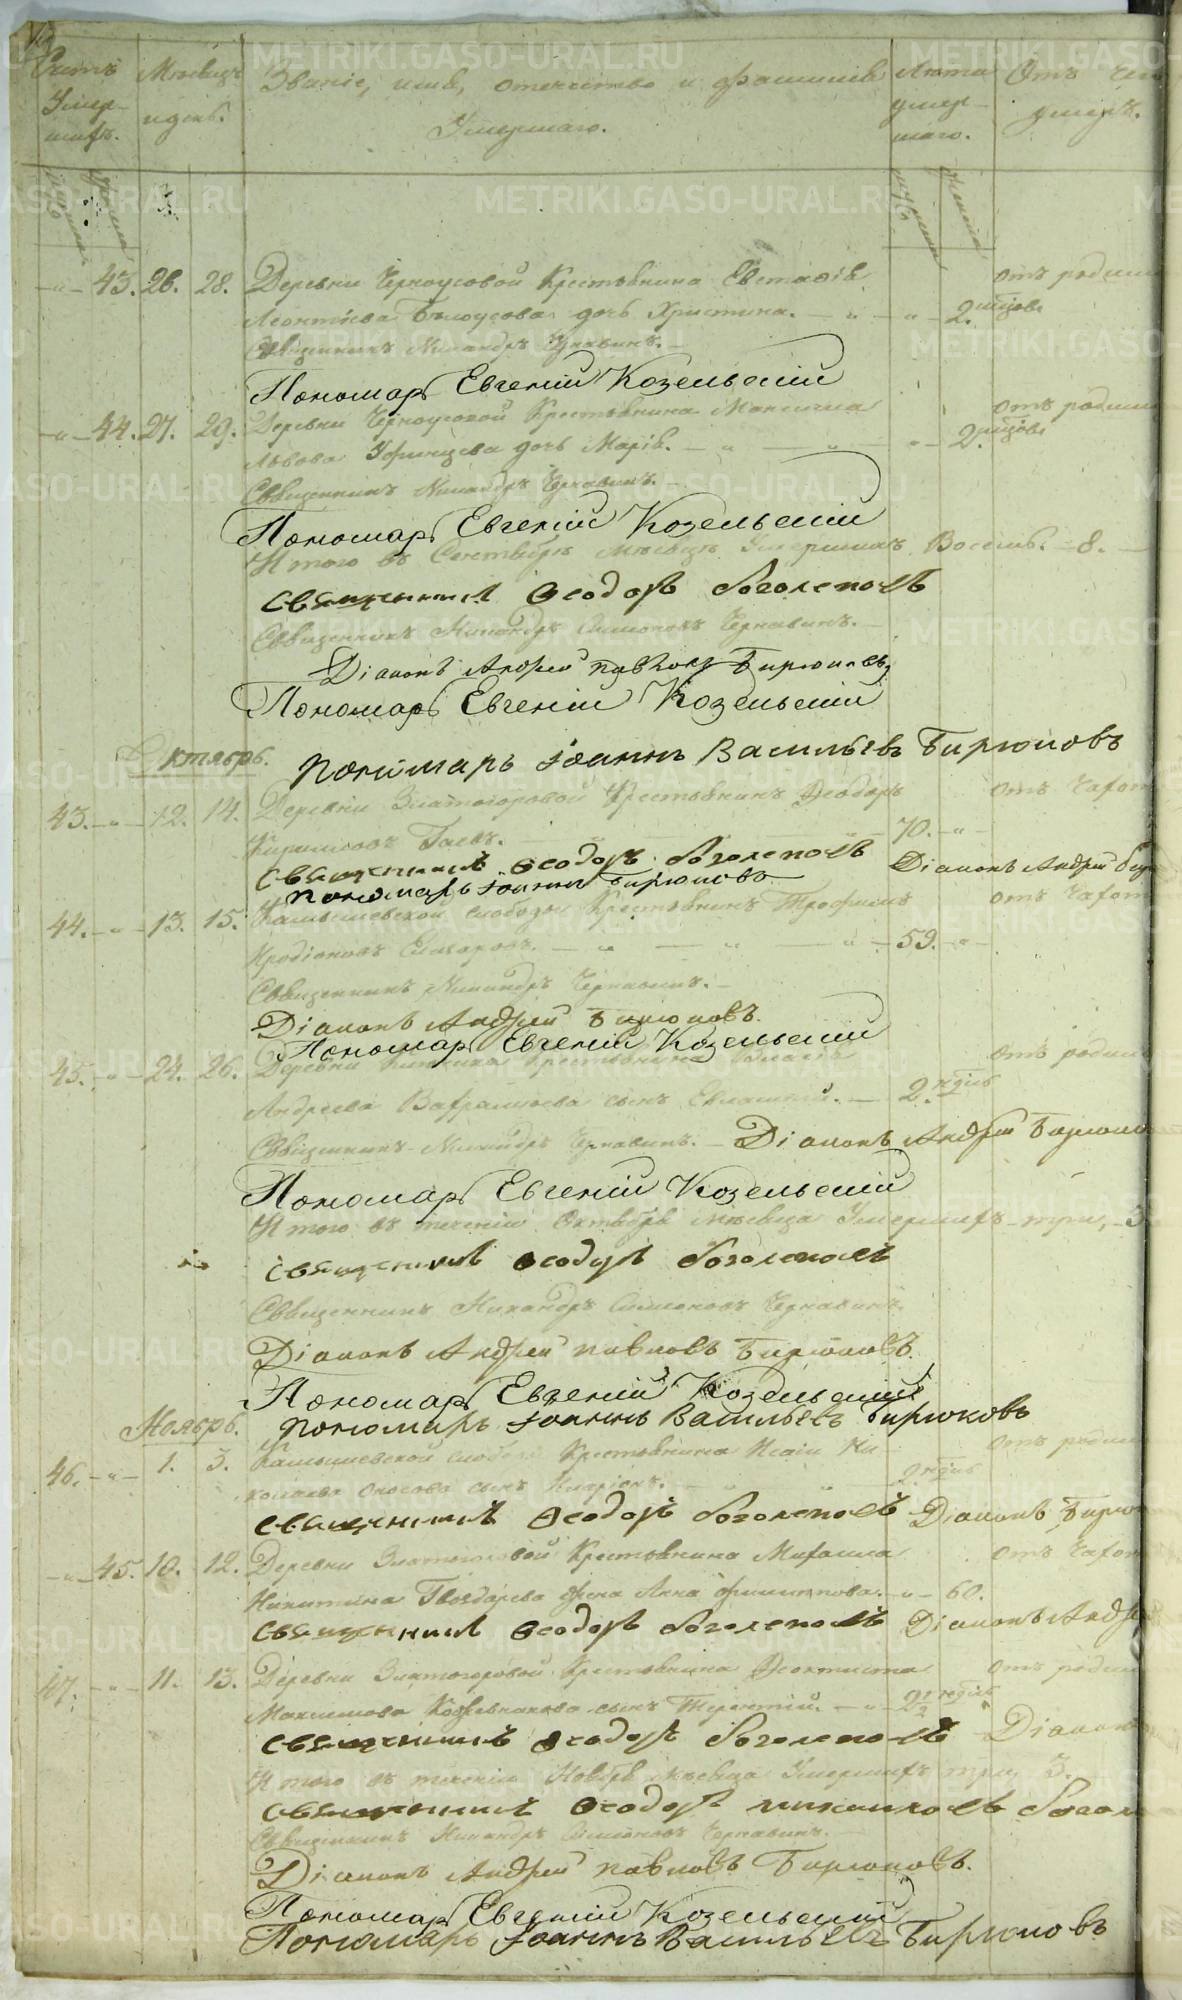 Счетъ Умершихъ.
Месяцъ и день.
Званіе, имя, отечество и фамилія Умершаго.
Лета умершаго.
Отъ чего умеръ.
43. 26. 28. Деревни Черноусовой Крестьянина Евстафія
Леонтіева Белоусова дочь Христина. 2. месяцовъ
отъ родим
Священникъ Никандръ Чернавинъ.
Пономарь Евгеній Козельскій
44. 27. 29. Деревни Черноусовой Крестьянина Максима
Львова Уфинцева дочь Марія. 2. месяцовъ
отъ родим
Священникъ Никандръ Чернавинъ.
Пономарь Евгеній Козельскій
И того въ Сентябре месяце Умершихъ Восемь. 8.
священникъ Ѳеодоръ боголеповъ
Священникъ Никандръ Симоновъ Чернавинъ.
Діаконъ Андрей павловъ Бирюковъ
Пономарь Евгеній Козельскій
Октябрь.
пономарь Іоаннъ Васильевъ Бирюковъ
43. 12. 14. Деревни Златогоровой Крестьянинъ Ѳеодоръ
Кириловъ Гаевъ. 70.
Отъ Чахот
священникъ Ѳеодоръ боголеповъ
Діаконъ Андрей бир
пономарь Іоаннъ Бирюковъ
44. 13. 15. Камышевской слободы Крестьянинъ Трофимъ
Иродіоновъ 59.
отъ Чахот
Священникъ Никандръ Чернавинъ.
Діаконъ Андрей Бирюковъ.
Пономарь Евгеній Козельскій
45. 24. 26. Деревни Крестьянина
Андреева сынъ Евлампій. 2. недель
Отъ родим
Священникъ Никандръ Чернавинъ. Діаконъ Андрей Бирюко
Пономарь Евгеній Козельскій
И того въ теченіи Октября месяца Умершихъ три, 3
священникъ Ѳеодоръ боголеповъ
Священникъ Никандръ Симоновъ Чернавинъ.
Діаконъ Андрей павловъ Бирюковъ.
Пономарь Евгеній Козельскій
Ноябрь.
пономарь Іоаннъ Васильевъ Бирюковъ
46. 1. 3. Камышевской слободы Крестьянина Исаіи Ни
колаева сынъ Иларіонъ. 2 недель
Отъ родим
священникъ Ѳеодоръ боголеповъ Діаконъ Бирю
45. 10. 12. Деревни Златогоровой Крестьянина Михаила
Никитина Гвоздарева жена Анна Филиппова. 60.
Отъ Чахот
священникъ Ѳеодоръ боголеповъ Діаконъ Андре
47. 11. 13. Деревни Златогоровой Крестьянина Ѳеоктиста
Максимова Кожевникова сынъ Терентій. 2 1/2 недель
Отъ родим
священникъ Ѳеодоръ боголеповъ Діаконъ
И того въ теченіи Ноября месяца Умершихъ три 3.
священникъ Ѳеодоръ михаиловъ боголе
Священникъ Никандръ Симоновъ Чернавинъ.
Діаконъ Андрей павловъ Бирюковъ.
Пономарь Евгеній Козельскій
Пономарь Іоаннъ Васильевъ Бирюковъ
METRIKI.GASO-URAL.RU